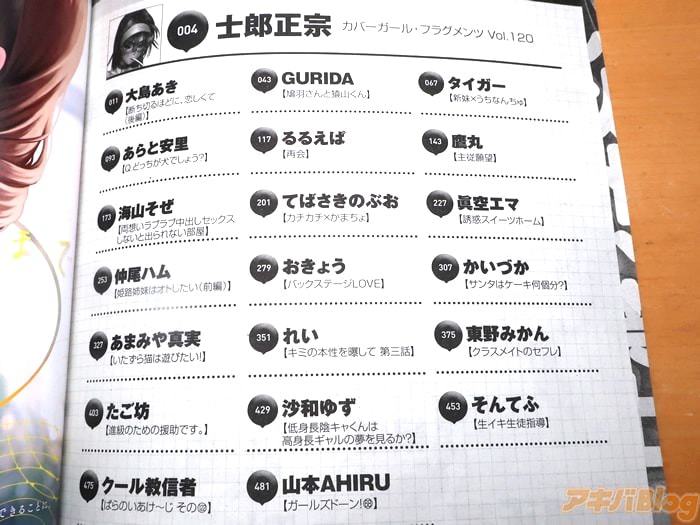 004 士郎正宗 カバーガール・フラグメンツ Vol.120
011 大島あき
【断ち切るほどに、恋しくて
(後編)】
043 GURIDA
【鳩羽さんと猿山くん】
067 タイガー
【新妹×うちなんちゅ】
093 あらと安里
【Q.どっちが犬でしょう?】
117 るるえぱ
【再会】
143 鷹丸
【主従願望】
173 海山そぜ
【両想いラブラブ中出しセックス
しないと出られない部屋】
201 てばさきのぶお
【カチカチ×かまちょ】
227 眞空エマ
【誘惑スイーツホーム】
253 仲尾ハム
【姫路姉妹はオトしたい(前編)】
279 おきょう
【バックステージLOVE】
307 かいづか
【サンタはケーキ何個分?】
327 あまみや真実
【いたずら猫は遊びたい!】
351 れい
【キミの本性を曝して 第三話】
375 東野みかん
【クラスメイトのセフレ】
403 たご坊
【進級のための援助です。】
429 沙和ゆず
【低身長陰キャくんは
高身長ギャルの夢を見るか?】
453 そんてふ
【生イキ生徒指導】
475 クール教信者
【ぱらのいあけ〜じ その】
481 山本AHIRU
【ガールズドーン!】
できることに
アキバBlog